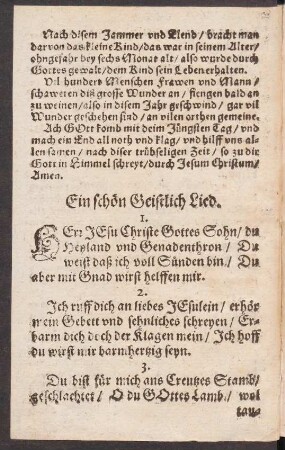 Nach disem Jammer vnd Elend / bracht man
dar von das kleine Kind / das war in seinem Alter /
ohngefahr bey sechs Monat alt / also wurde durch
Gottes gewalt / dem Kind sein Leben erhalten.
Vil hundert Menschen Frawen vnd Mann /
schaweten diß grosse Wunder an / fiengen bald an
zu weinen / also in disem Jahr geschwind / gar vil
Wunder geschehen sind / an vilen orthen gemeine.
Ach GOtt komb mit deim Jüngsten Tag / vnd
mach ein End all noth vnd klag / vnd hilff vns al-
len samen / nach diser trübseligen Zeit / so zu dir
Gott in Himmel schreyt / durch Jesum Christum /
Amen.
Ein schön Geistlich Lied.
1.
HErr JEsu Christe Gottes Sohn / du
Heyland vnd Genadenthron / Du
weist daß ich voll Sünden bin / Du
aber mit Gnad wirst helffen mir.
2.
Ich ruff dich an liebes JEsulein / erhör
mein Gebett vnd sehnliches schreyen / Er-
barm dich doch der Klagen mein / Ich hoff
du wirst mir barmhertzig seyn.
3.
Du bist für mich ans Creutzes Stamb /
geschlachtet / O du GOttes Lamb / wol